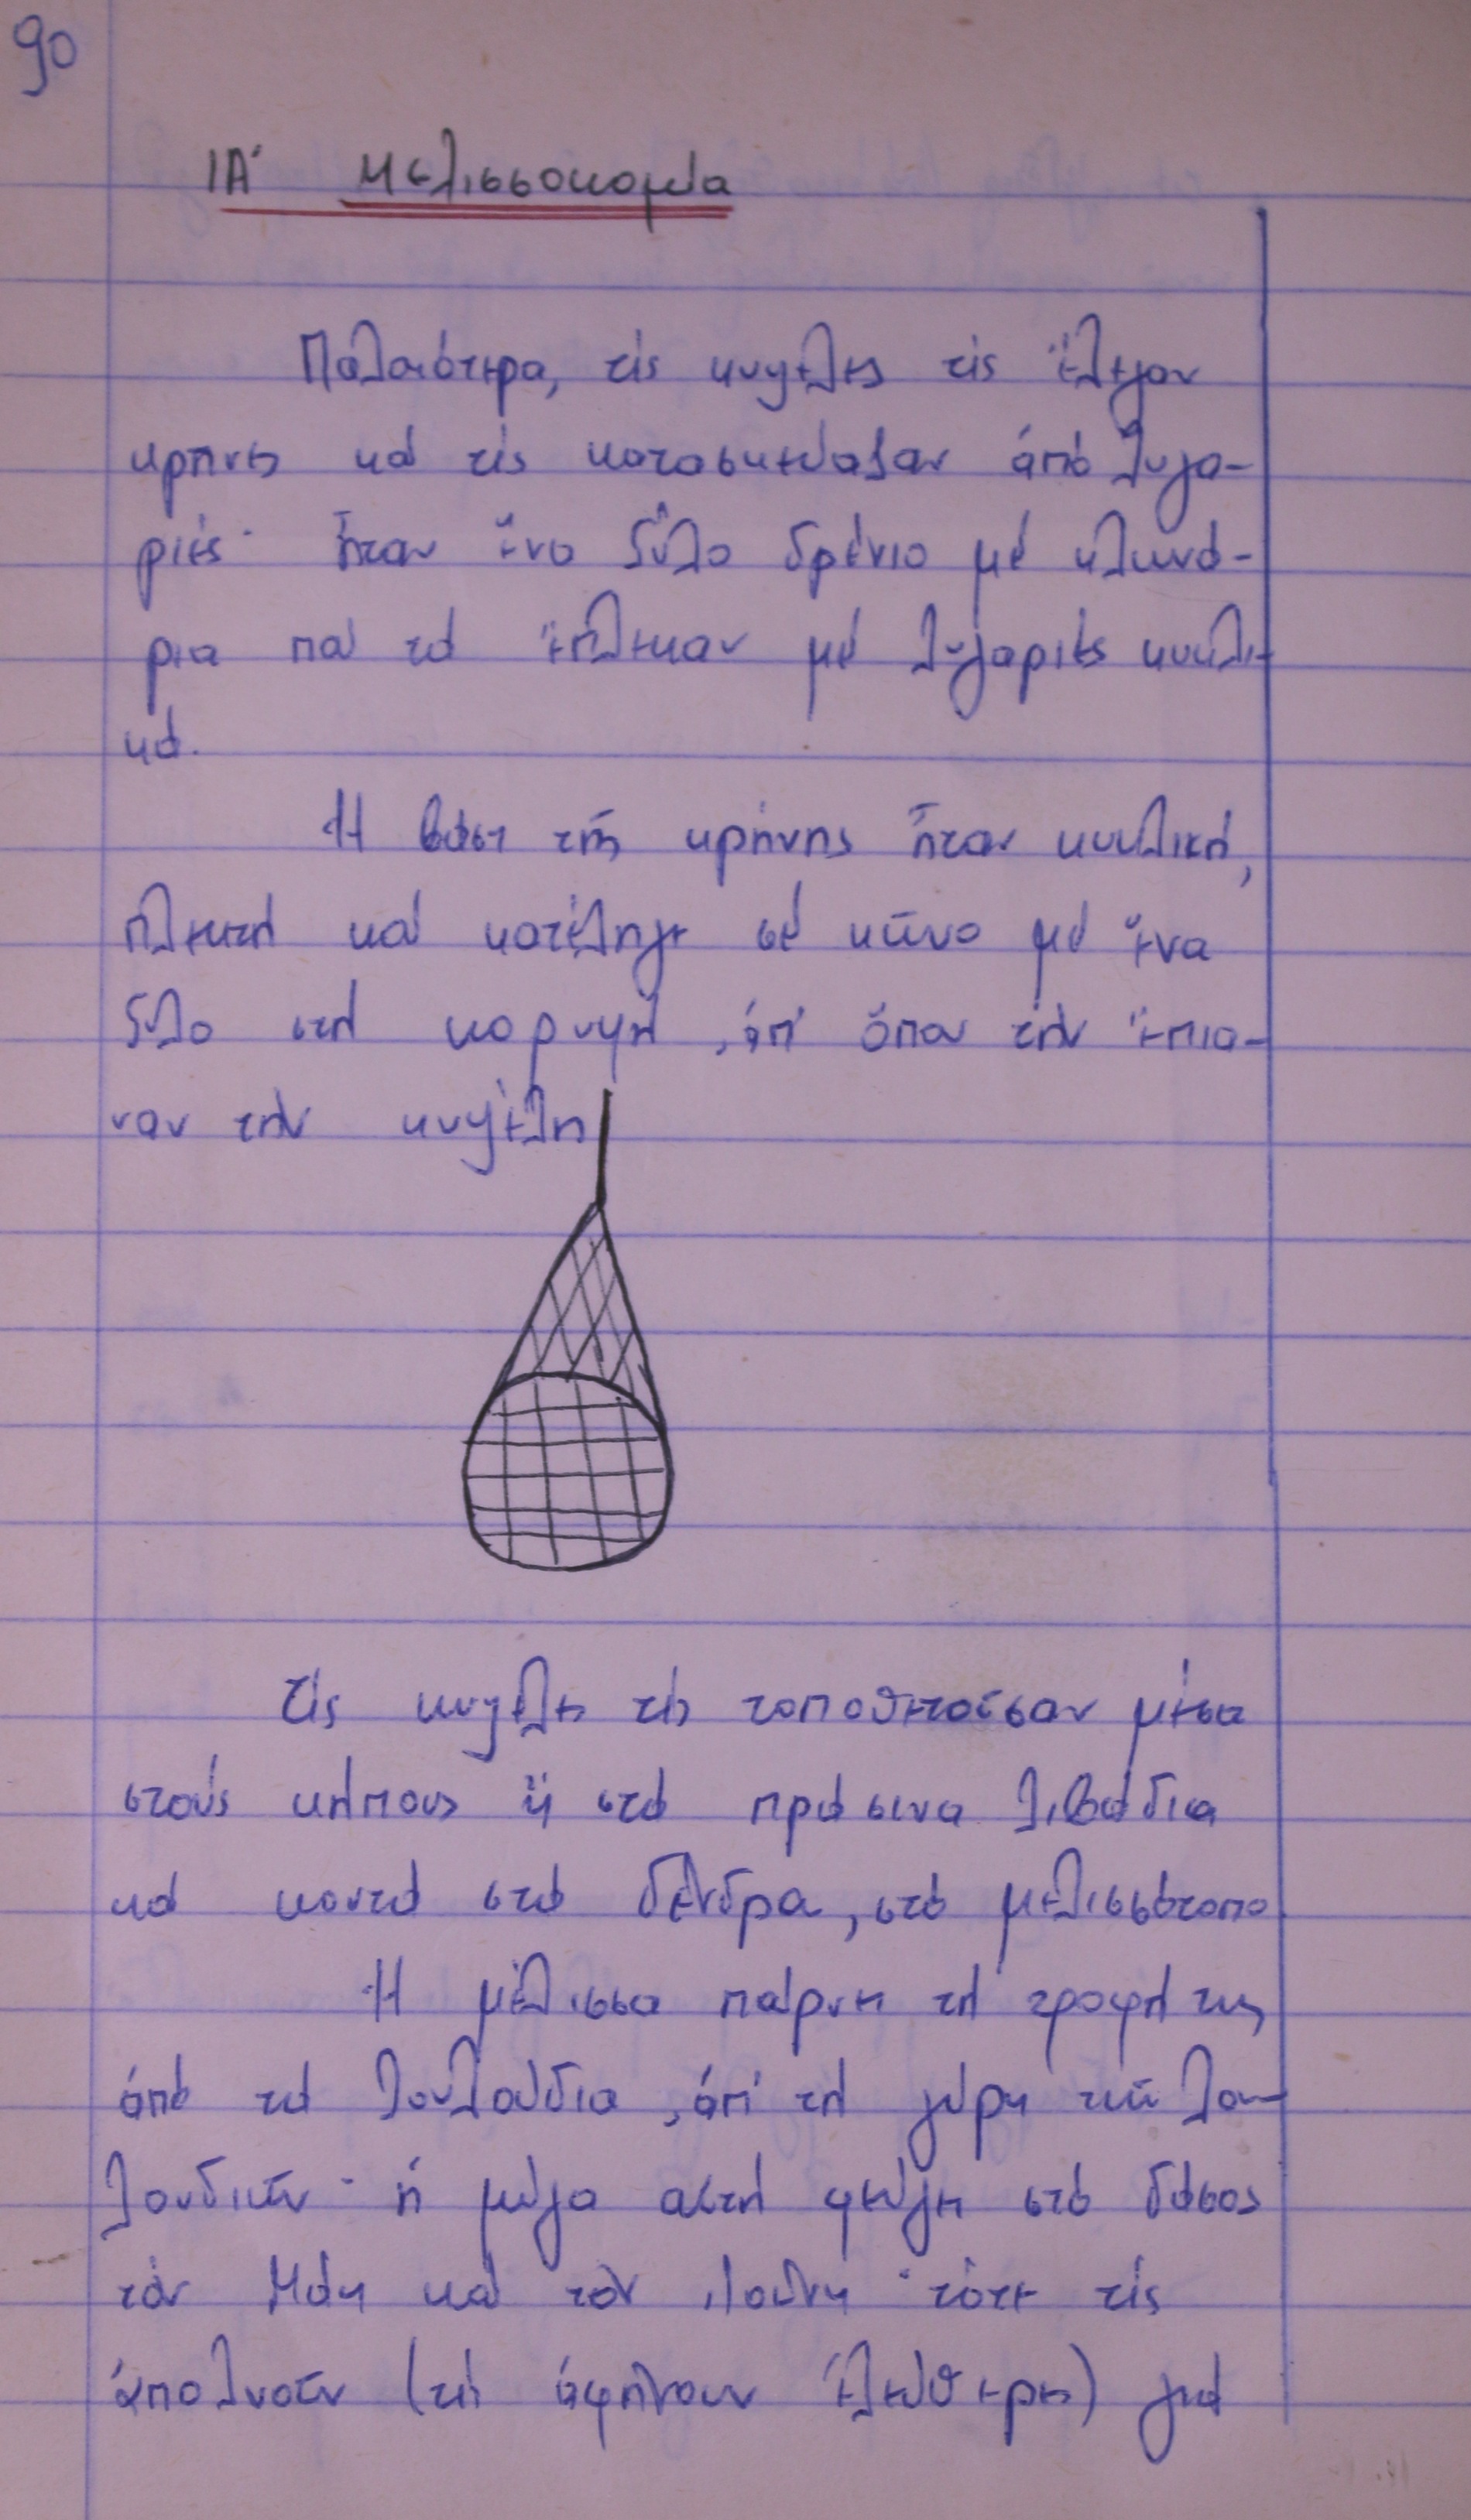 90
ΙΑ΄ Μελισσοκομία
Παλαιότερα, τίς κυψέλες τίς ἔλεγαν
κρήνες καί τίς κατασκεύαζαν ἀπό λυγα-
ριές· ἦταν ἕνα ξύλο δρένιο μέ κλωνά-
ρια πού τά ἔπλεκαν μέ λυγαριές κυκλι-
κά.
Ἡ βάση τῆς κρήνης ἦταν κυκλική,
πλεκτή καί κατέληγε σέ κῶνο μέ ἕνα
ξύλο στή κορυφή, ἀπ' ὅπου τήν ἔπια-
ναν τήν κυψέλη
Τίς κυψέλες τίς τοποθετοῦσαν μέσα
στούς κήπους ἤ στά πράσινα λιβάδια
καί κοντά στά δένδρα, στό μελισσότοπο.
Ἡ μέλισσα παίρνει τή τροφή της
ἀπό τά λουλούδια, ἀπ' τή γύρη τῶν λου-
λουδιῶν· ἡ μύγα αὐτή φεύγει στό δάσος
τόν Μάη καί τόν Ἰούνη· τότε τίς
ἀπολνοῦν (τίς ἀφήνουν ἐλεύθερες) γιά